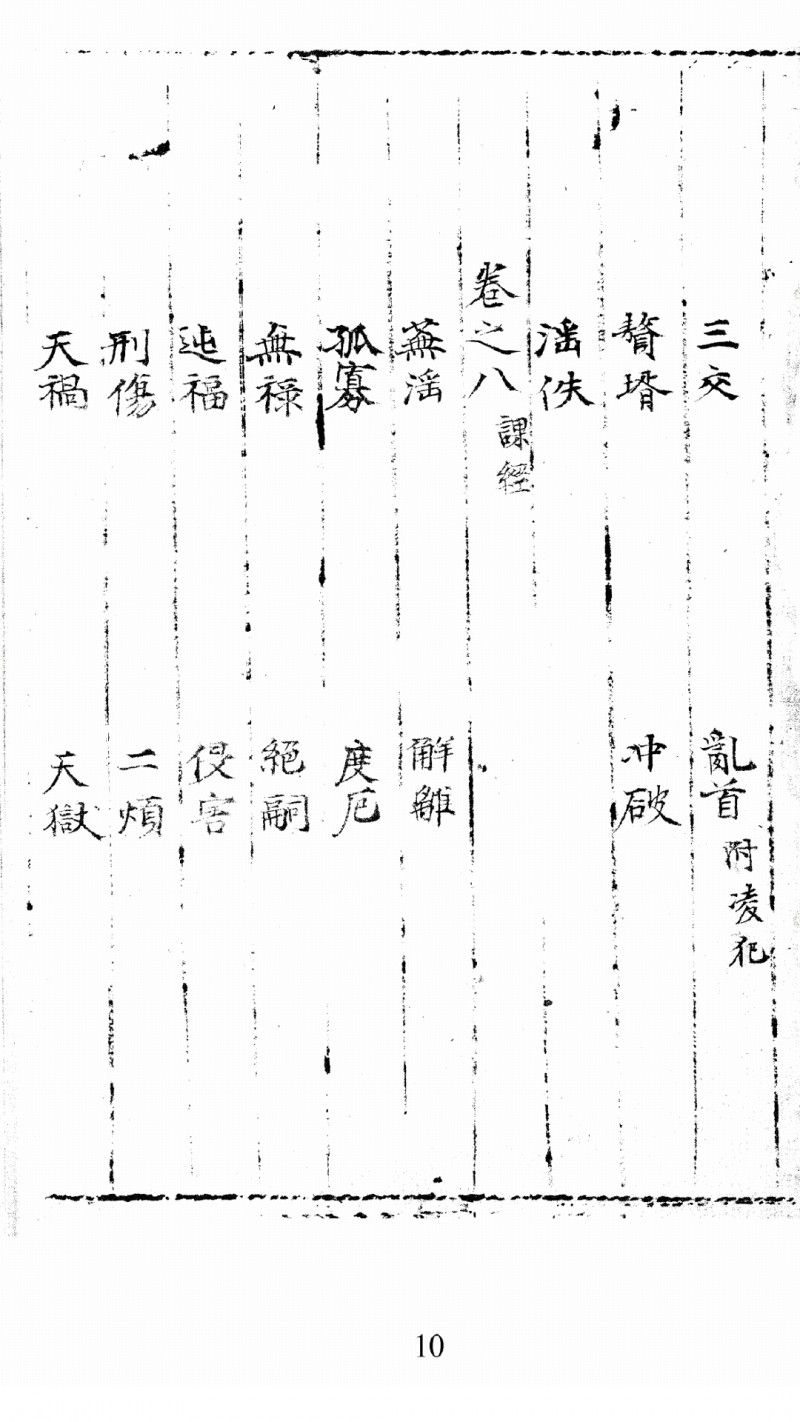 三交 亂首 附凌犯
贅壻 冲破
滛佚
卷之八 課經
蕪滛 觧離
孤寡 度厄
無祿 絕嗣
迍福 侵害
刑傷 二煩
天禍 天獄
10